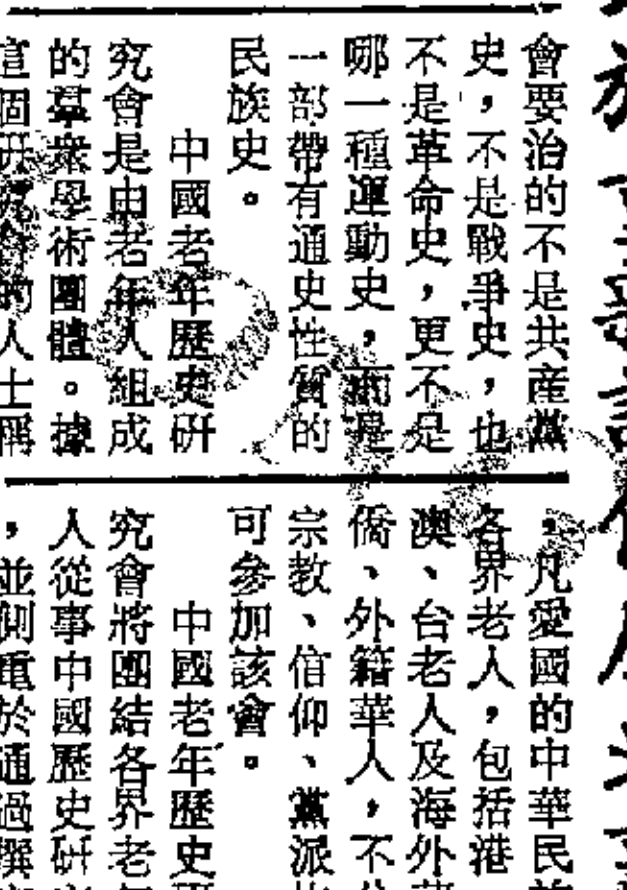 會要治的不是共産黨
史，不是戰爭史，也
不是革命史，更不是
哪一種運動史，而是
一部帶有通史性質的
民族史。
中國老年歷史研
究會是由老年人組成
的羣衆學術團體。據
這個研究會的人士稱
，凡愛國的中華民族
各界老人，包括港
澳、台老人及海外華
僑、外籍華人，不分
宗教、信仰、黨派
可參加該會。
中國老年歷史研
究會將團結各界老年
人從事中國歷史研究
，並側重於通過撰